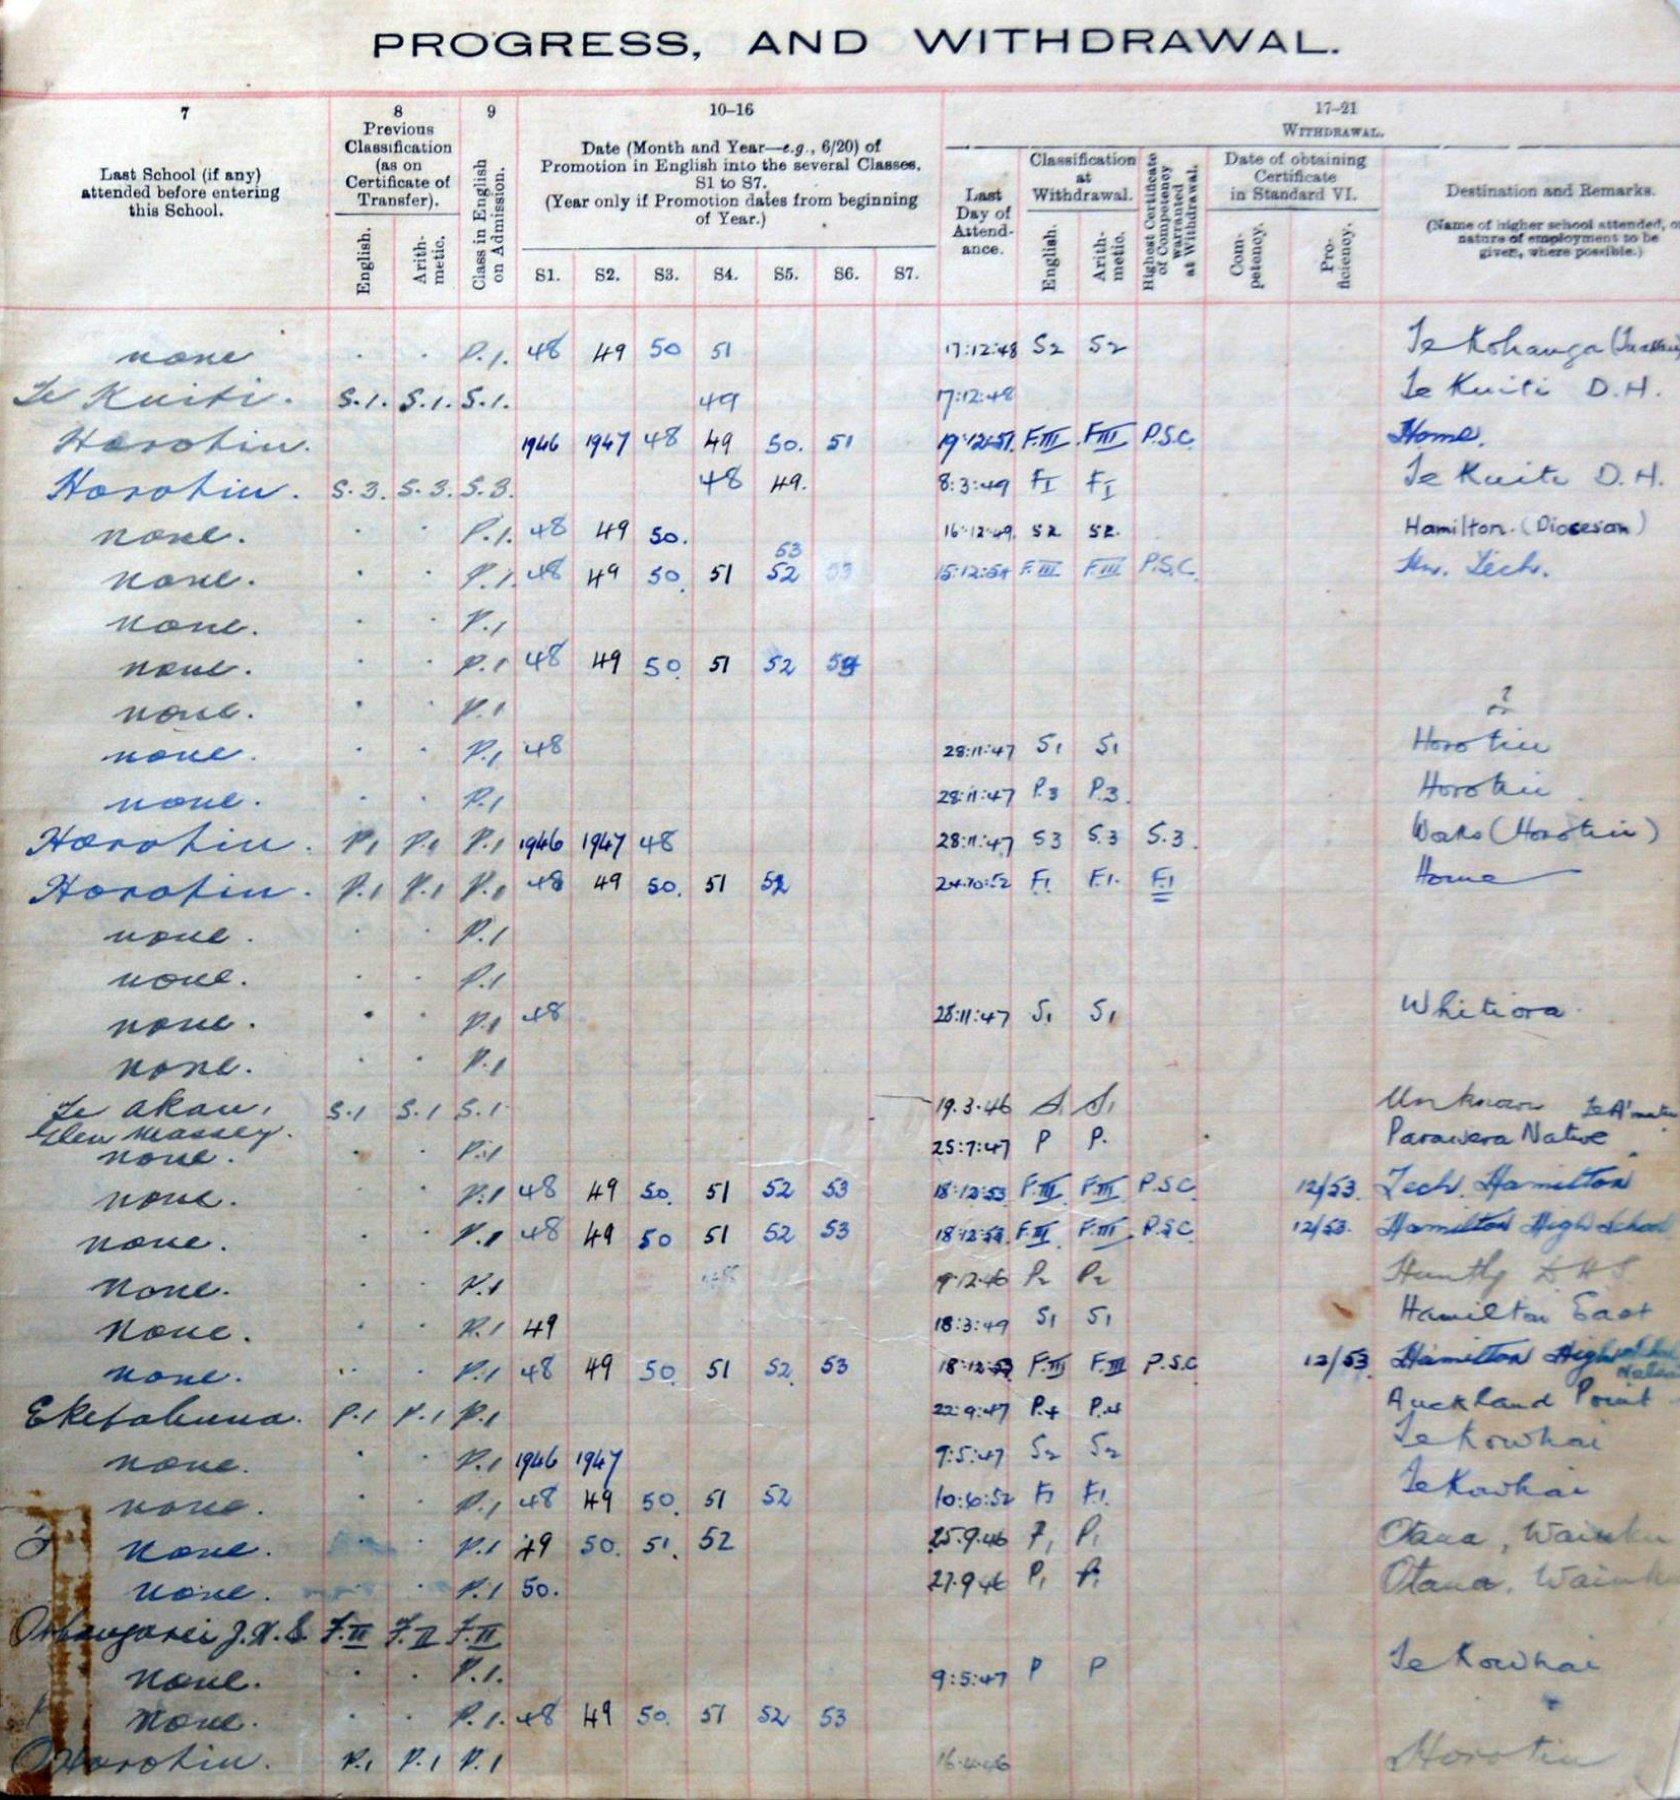 PROGRESS, AND WITHDRAWAL.
7 8 9 10-16 17-21
Last School (if any) attended before entering this School.
Previous Classification (as on Certificate of Transfer).
English.
Arith-metic.
Class in English on Admission.
Date (Month and Year—e.g., 6/20) of
Promotion in English into the several Classes,
S1 to S7.
(Year only if Promotion dates from beginning
of Year.)
S1. S2. S3. S4. S5. S6. S7.
WITHDRAWAL.
Last Day of Attend-ance.
Classification at Withdrawal.
English.
Arith-metic.
Highest Certificate of Competency warranted at Withdrawal.
Date of obtaining Certificate in Standard VI.
Com-petency.
Pro-ficiency.
Destination and Remarks.
(Name of higher school attended, or
nature of employment to be
given, where possible.)
none . . P.1. 48 49 50 51 17:12:48 S2 S2 Te Kohanga
Te Kuiti. S.1. S.1. S.1. 49 17:12:48 Te Kuiti D.H.
Horotiu. 1946 1947 48 49 50. 51 19:12:51. F.III F.III P.S.C. Home.
Horotiu. S.3. S.3. S.3. 48 49. 8:3:49 F I F I Te Kuiti D.H.
none. . . P.1. 48 49 50. 16:12:49. S2 S2. Hamilton. (Diocesan)
53
none. . . P.1. 48 49 50. 51 52 53 15:12:54 F.III F.III P.S.C. Hn. Tech.
none. . . P.1
none. . . P.1 48 49 50. 51 52 54
none. . . P.1
? or
none. . . P.1 48 28:11:47 S1 S1 Horotiu
none. . . P.1 28:11:47 P.3 P.3. Horotiu
Horotiu. P.1 P.1 P.1 1946 1947 48 28:11:47 S3 S.3 S.3. (Horotiu)
Horotiu. P.1 P.1 P.1 48 49 50. 51 52 24:10:52 F1 F.1. F.1 Home
none. . . P.1
none. . . P.1
none. . . P.1 48 28:11:47 S1 S1 Whitiora
none. . . P.1
Te Akau, S.1 S.1 S.1 19.3.46 S1 S1 Unknown
Glen Massey.
none. . . P.1 25:7:47 P P. Parawera Native
none. . . P.1 48 49 50. 51 52 53 18:12:53 F.III F.III P.S.C. 12/53. Tech. Hamilton
none. . . P.1 48 49 50 51 52 53 18:12:53. F.III F.III. P.S.C. 12/53. Hamilton High School
None. . . P.1 9.12.46 P2 P2 Huntly D.H.S.
None. . . P.1 49 18:3:49 S1 S1 Hamilton East
none. . . P.1 48 49 50. 51 52. 53 18:12:53 F.III F.III P.S.C 12/53. Hamilton High
Eketahuna. P.1 P.1 P.1 22:9:47 P.4 P.4 Auckland Point
none. . . P.1 1946 1947 9:5:47 S2 S2 Te Kowhai
none. . . P.1 48 49 50. 51 52 10:6:52 F1 F.1. Te Kowhai
none. . . P.1 49 50. 51. 52 25.9.46 P1 P1 Otaua, Waiuku
none. . . P.1 50. 27.9.46 P1 P1 Otaua, Waiuku
F.II F.II F.II
none. . . P.1. 9:5:47 P P Te Kowhai
None. . . P.1. 48 49 50. 51 52 53
Horotiu. P.1 P.1 P.1 16.4.46 Horotiu